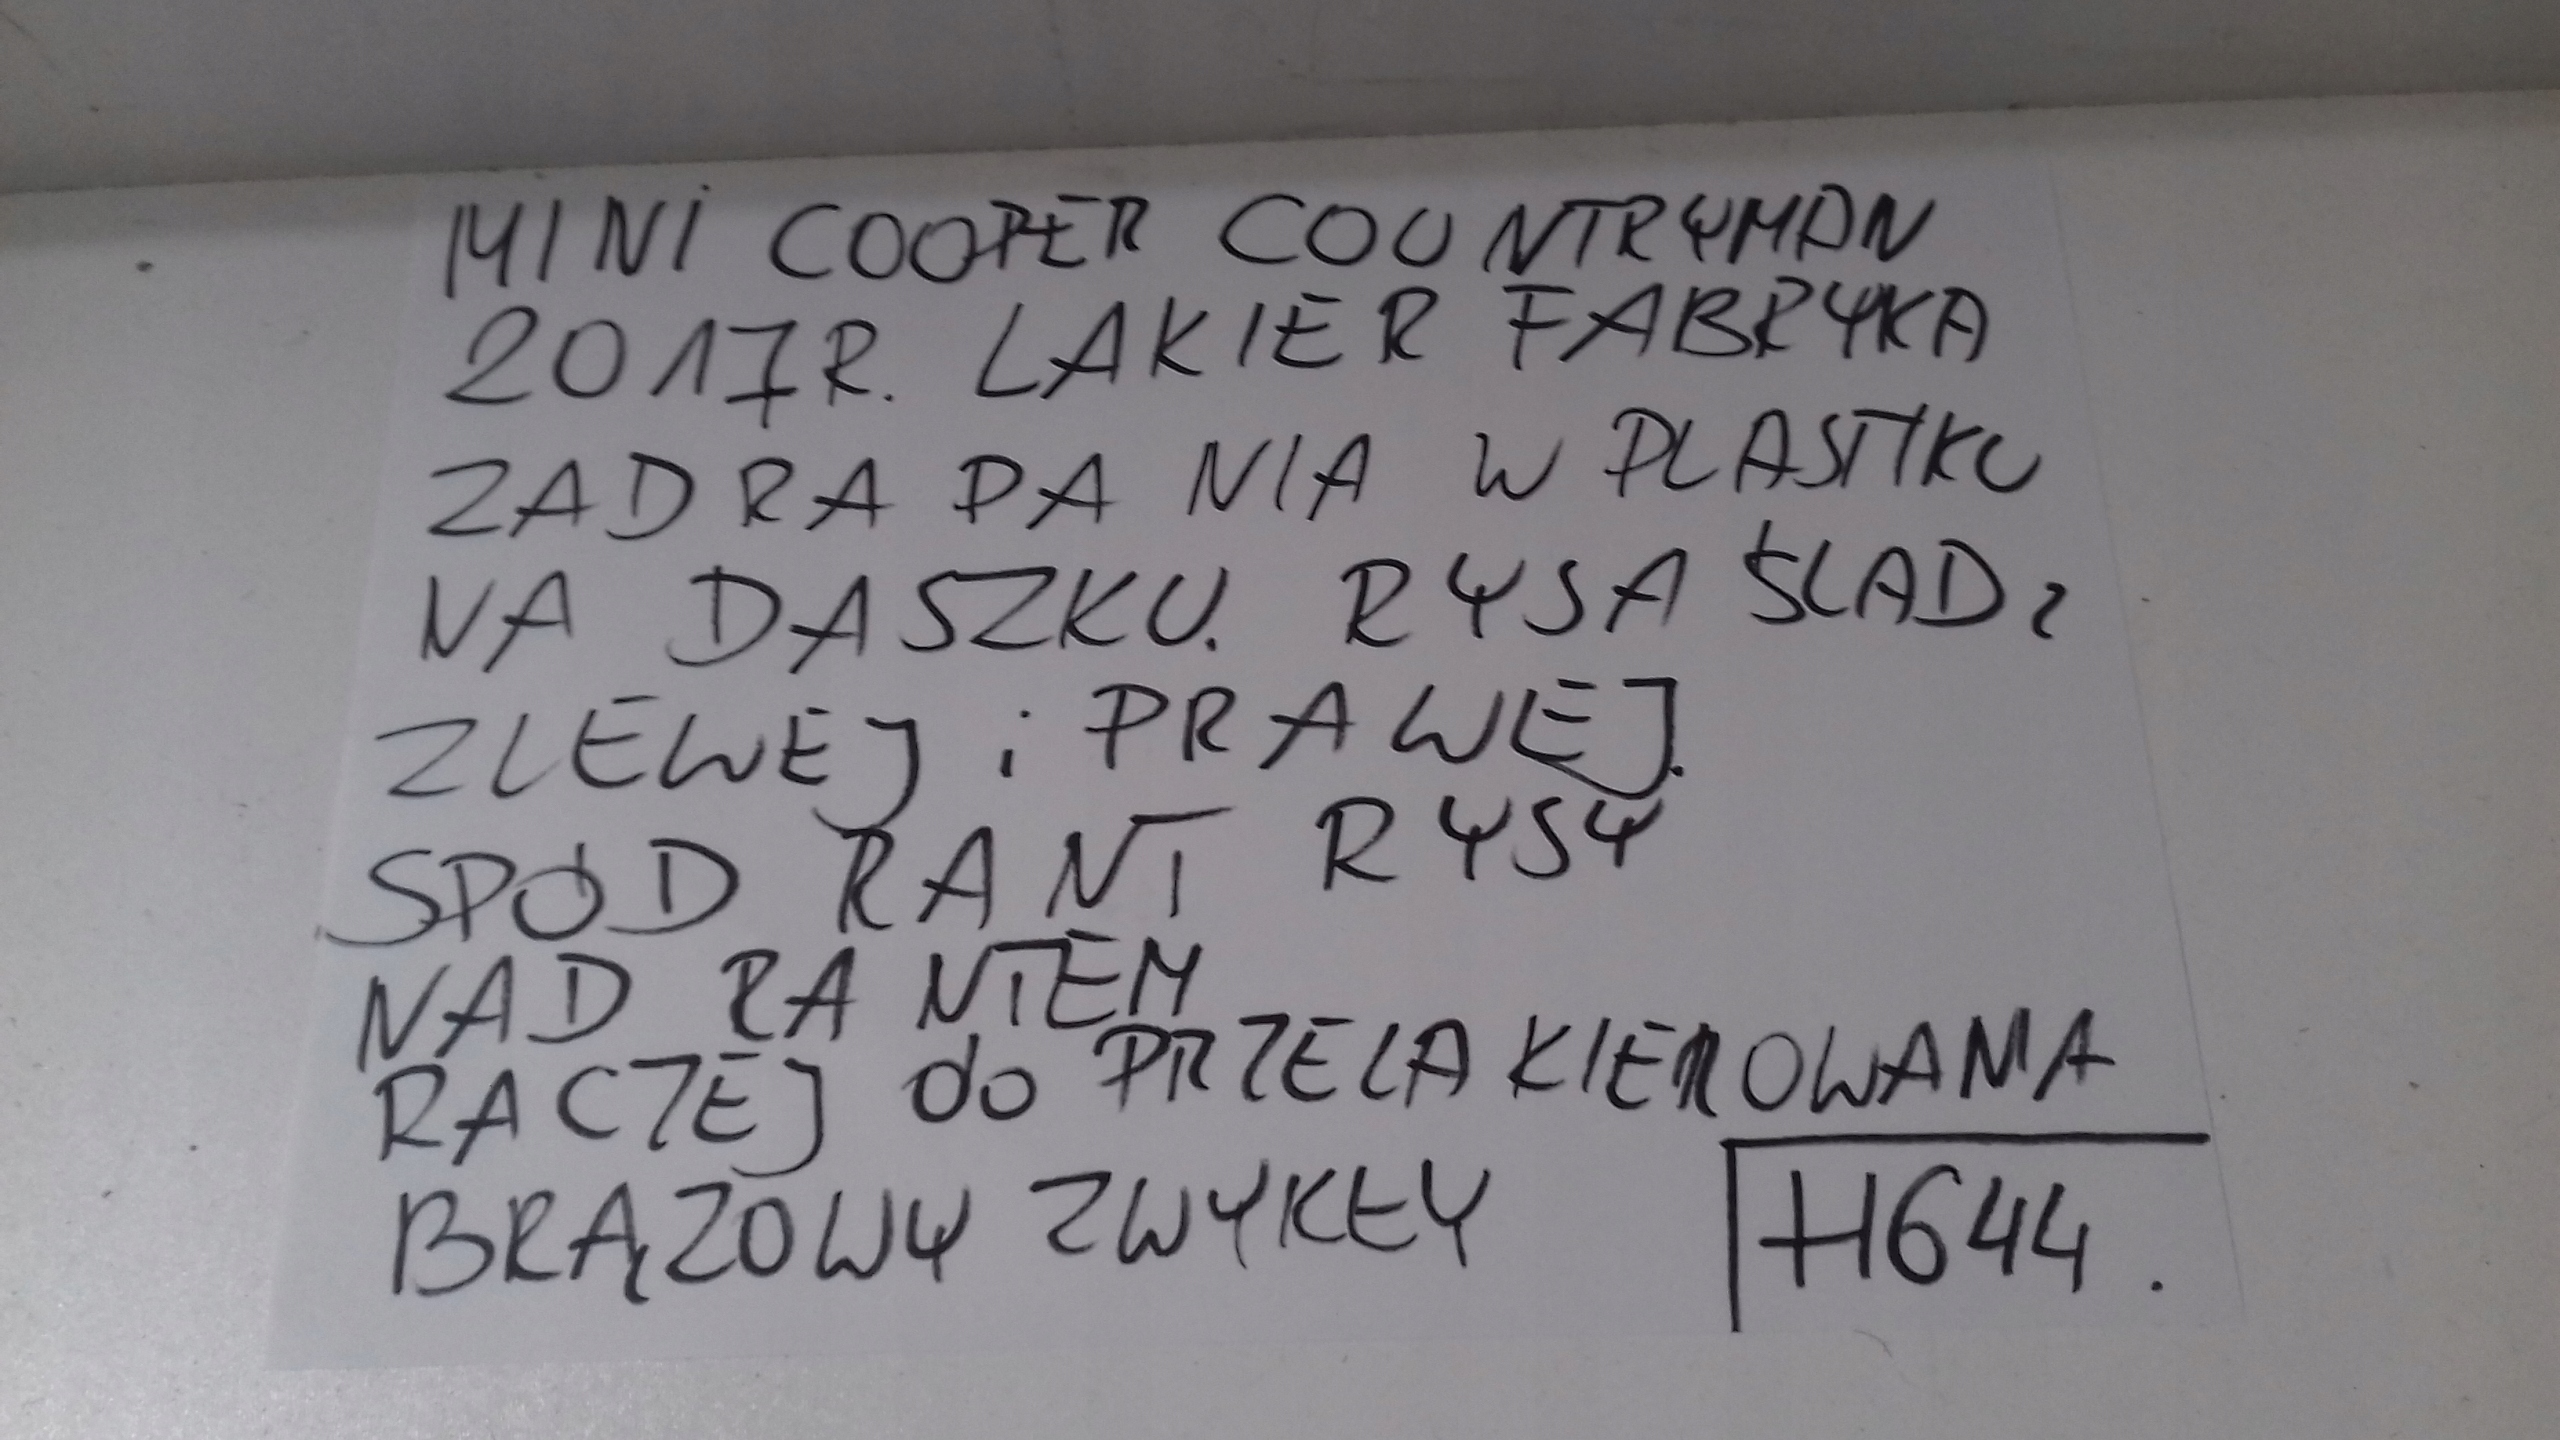 MINi COOPER COUNTRYMAN
2017R. LAKIER FABRYKA
ZADRAPANIA W PLASTIKU
NA DASZKU. RYSA ŚLAD 2
Z LEWEJ i PRAWEJ.
SPÓD RANT RYSY
NAD RANTEM
RACZEJ do PRZELAKIEROWANIA
BRĄZOWY ZWYKŁY H644.